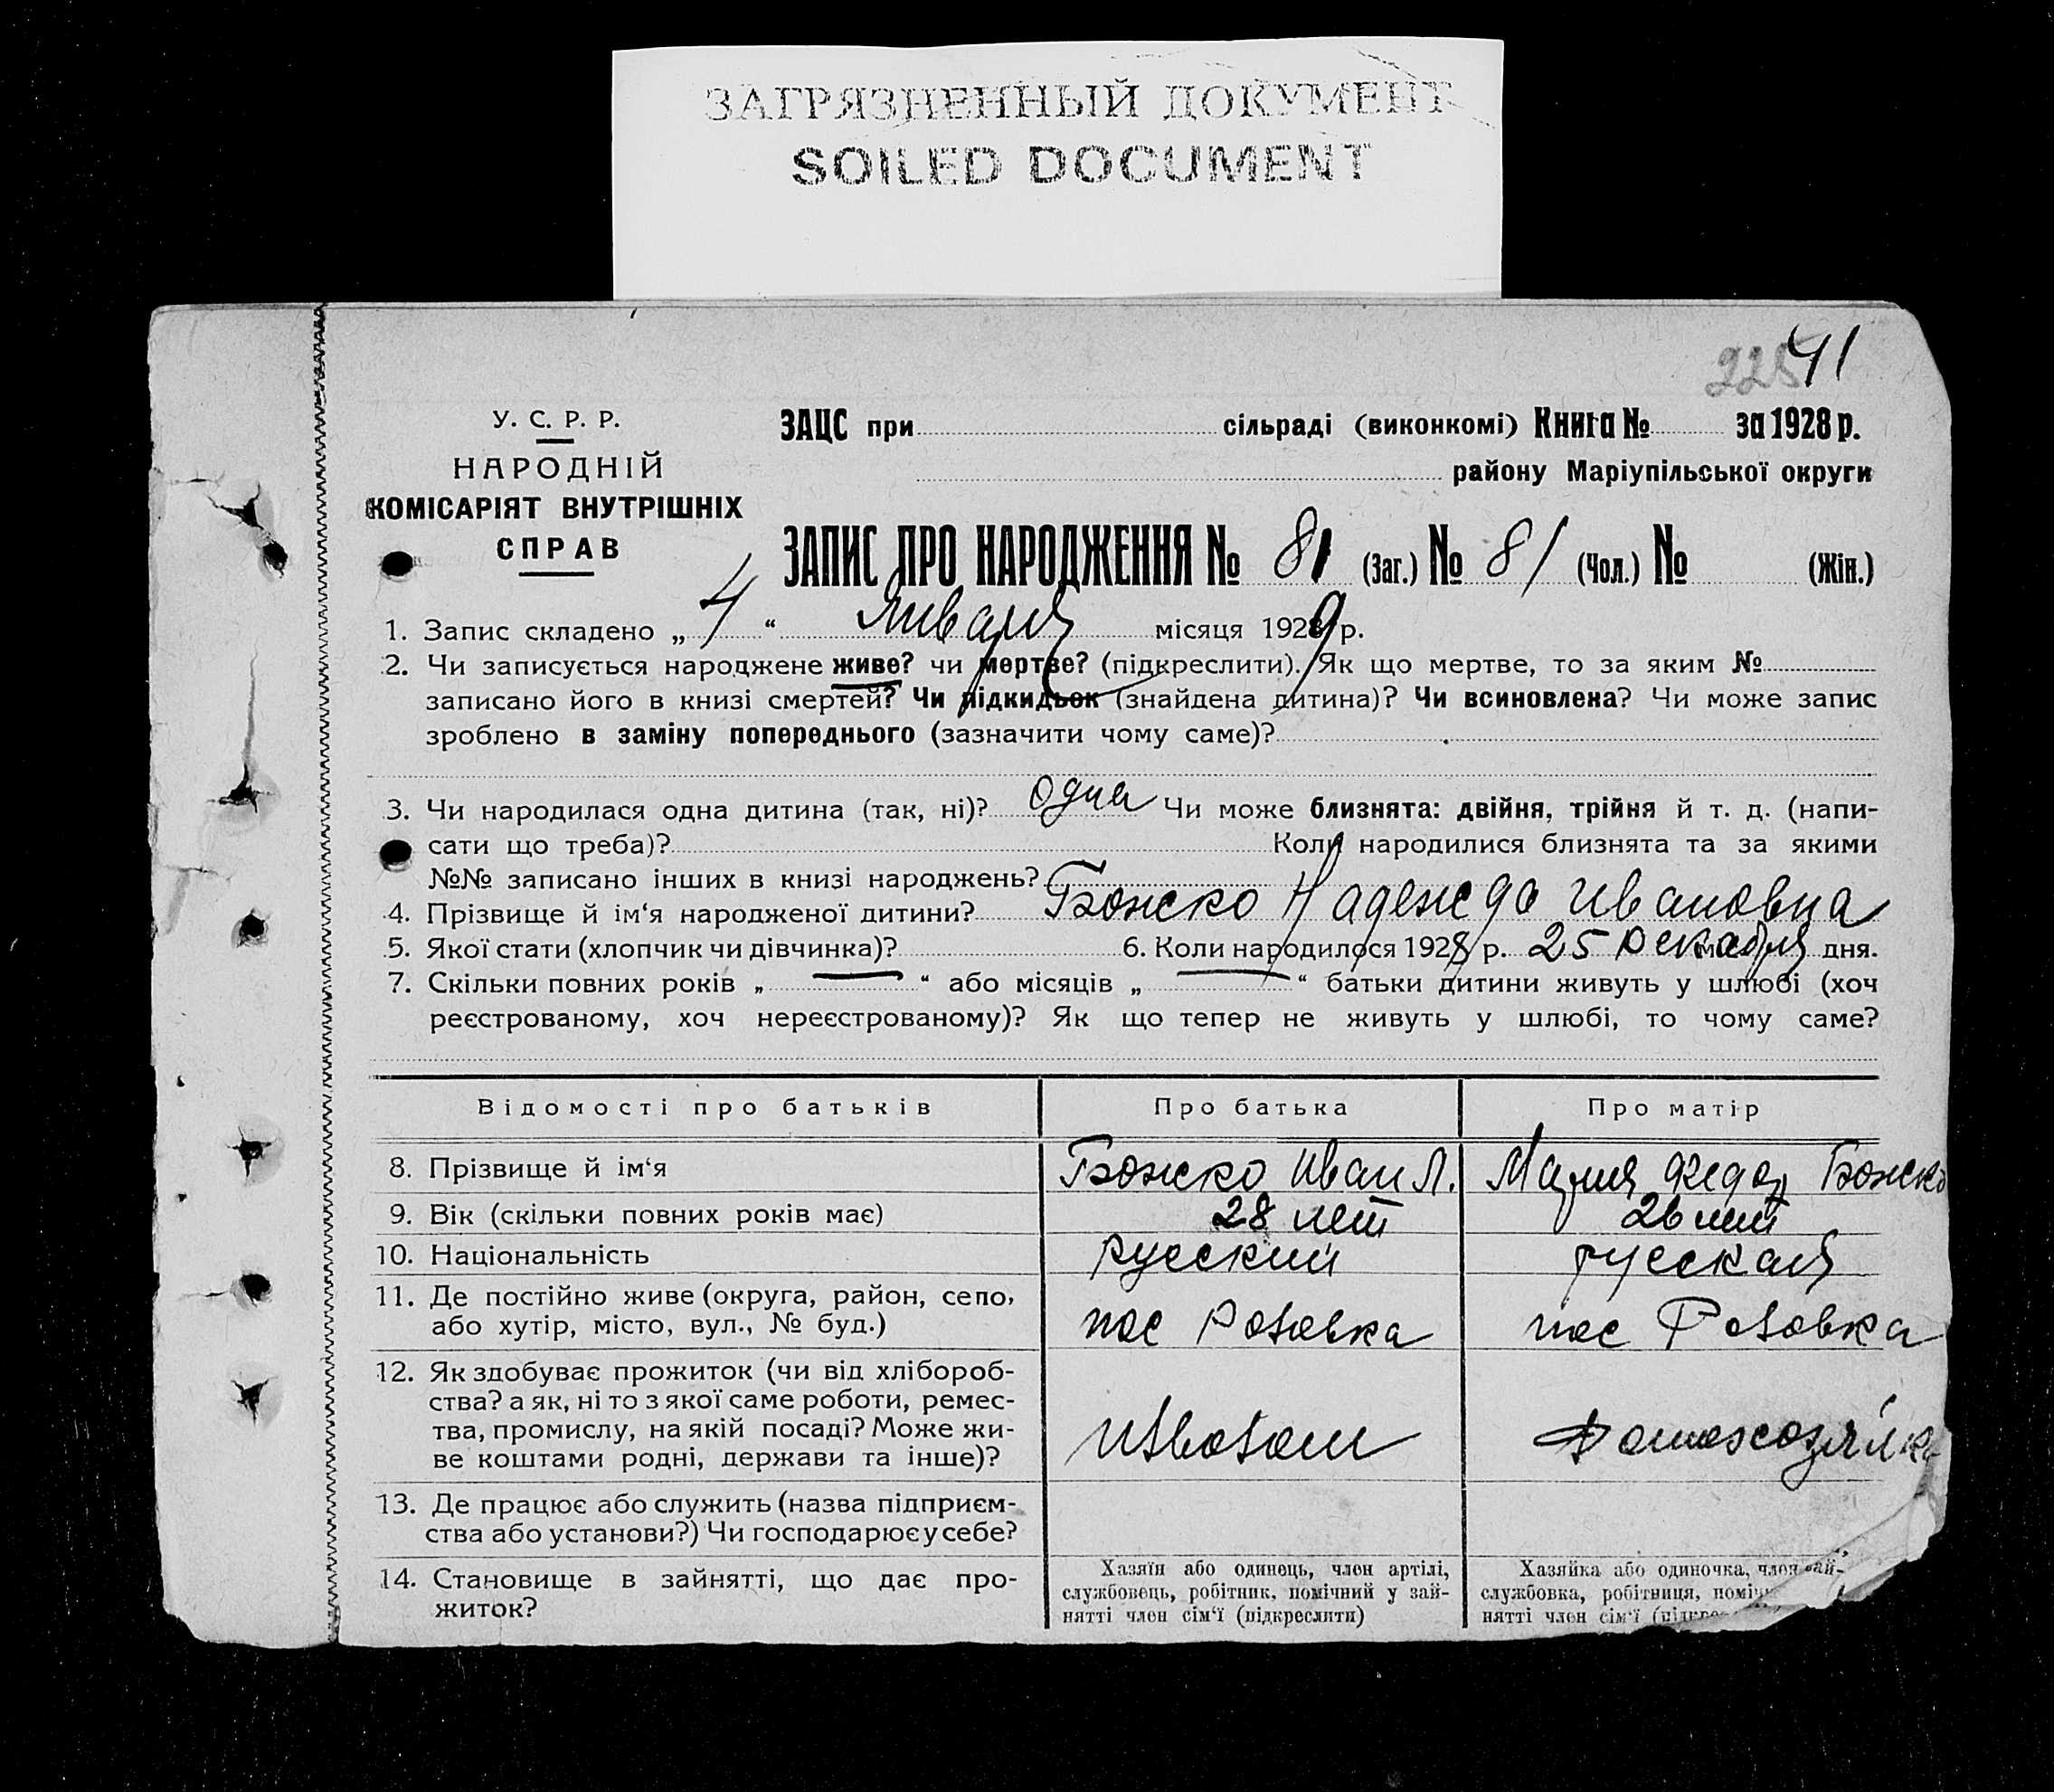 ЗАГРЯЗНЕННЫЙ ДОКУМЕНТ
SOILED DOCUMENT
225 41
У. С. Р. Р.
НАРОДНІЙ
КОМІСАРІЯТ ВНУТРІШНІХ
СПРАВ
ЗАЦС при сільраді (виконкомі) Книга № за 1928 р.
району Маріупільської округи
ЗАПИС ПРО НАРОДЖЕННЯ № 81 (Заг.) № 81 (Чол.) № (Жін.)
1. Запис складено „ 4 “ Января місяця 1929 р.
2. Чи записується народжене живе? чи мертве? (підкреслити). Як що мертве, то за яким №
записано його в книзі смертей? Чи підкидьок (знайдена дитина)? Чи всиновлена? Чи може запис
зроблено в заміну попереднього (зазначити чому саме)?
3. Чи народилася одна дитина (так, ні)? одна Чи може близнята: двійня, трійня й т. д. (напи-
сати що треба)? Коли народилися близнята та за якими
№№ записано інших в книзі народжень?
4. Прізвище й ім‘я народженої дитини? Божко Надежда Ивановна
5. Якої стати (хлопчик чи дівчинка)? 6. Коли народилося 1928 р. 25 Декабря дня.
7. Скільки повних років „ — “ або місяців „ — “ батьки дитини живуть у шлюбі (хоч
реєстрованому, хоч нереєстрованому)? Як що тепер не живуть у шлюбі, то чому саме?
Відомості про батьків Про батька Про матір
8. Прізвище й ім‘я Божко Иван Л. Мария Федор Божко
9. Вік (скільки повних років має) 28 лет 26 лет
10. Національність русский русская
11. Де постійно живе (округа, район, село,
або хутір, місто, вул., № буд.) пос Розовка пос Розовка
12. Як здобуває прожиток (чи від хлібороб-
ства? а як, ні то з якої саме роботи, ремес-
тва, промислу, на якій посаді? Може жи-
ве коштами родні, держави та інше)? извозом Домохозяйка
13. Де працює або служить (назва підприєм-
ства або установи?) Чи господарює у себе?
14. Становище в зайнятті, що дає про-
житок?
Хазяїн або одинець, член артілі,
службовець, робітник, помічний у зай-
нятті член сім‘ї (підкреслити)
Хазяйка або одиночка, член
службовка, робітниця,
нятті член сім‘ї